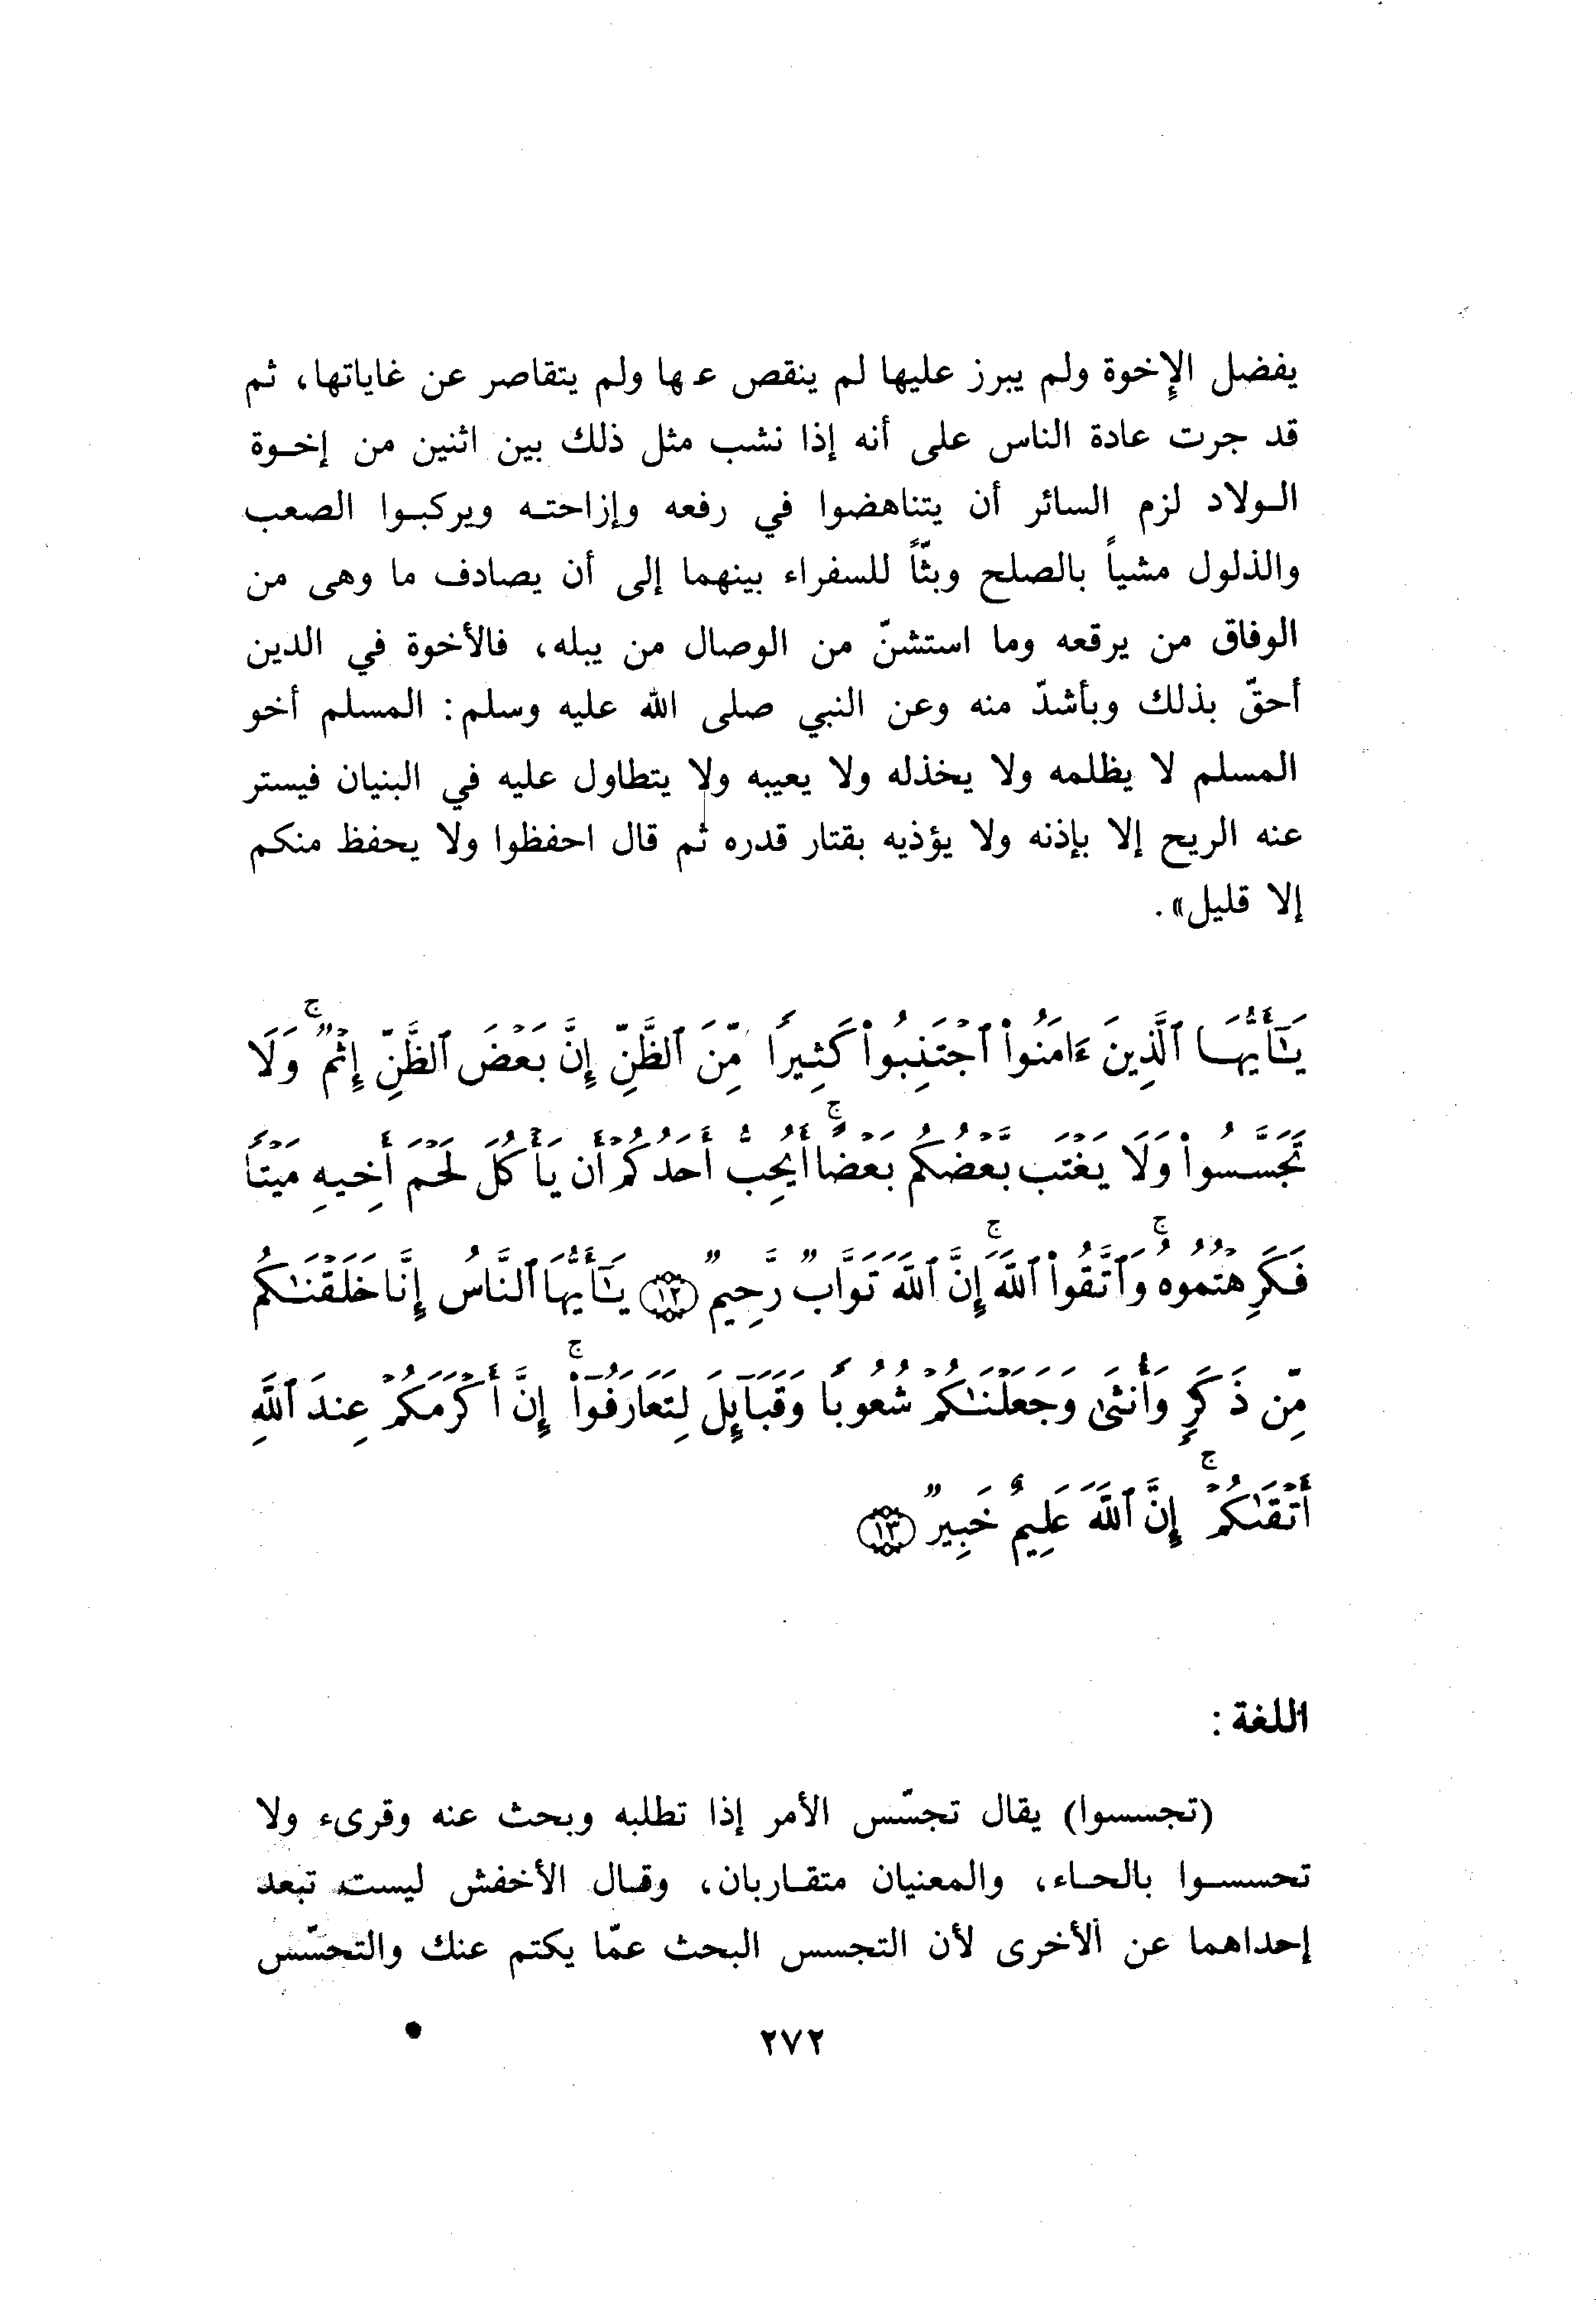 يفضل الإخوة ولم يبرز عليها لم ينقص عنها ولم يتقاصر عن غاياتها، ثم
قد جرت عادة الناس على أنه إذا نشب مثل ذلك بين اثنين من إخــوة
الــولاد لزم السائر أن يتناهضوا في رفعه وإزاحتــه ويركبــوا الصعب
والذلول مشياً بالصلح وبثّاً للسفراء بينهما إلى أن يصادف ما وهى من
الوفاق من يرقعه وما استشنّ من الوصال من يبله، فالأخوة في الدين
أحقّ بذلك وبأشدّ منه وعن النبي صلى الله عليه وسلم: المسلم أخو
المسلم لا يظلمه ولا يخذله ولا يعيبه ولا يتطاول عليه في البنيان فيستر
عنه الريح إلا بإذنه ولا يؤذيه بقتار قدره ثم قال احفظوا ولا يحفظ منكم
إلا قليل».
يَـٰٓأَيُّهَا ٱلَّذِينَ ءَامَنُواْ ٱجْتَنِبُواْ كَثِيرًا مِّنَ ٱلظَّنِّ إِنَّ بَعْضَ ٱلظَّنِّ إِثْمٌ ۚ وَلَا
تَجَسَّسُواْ وَلَا يَغْتَب بَّعْضُكُم بَعْضًا ۚ أَيُحِبُّ أَحَدُكُمْ أَن يَأْكُلَ لَحْمَ أَخِيهِ مَيْتًا
فَكَرِهْتُمُوهُ ۚ وَٱتَّقُواْ ٱللَّهَ ۚ إِنَّ ٱللَّهَ تَوَّابٌ رَّحِيمٌ ١٢ يَـٰٓأَيُّهَا ٱلنَّاسُ إِنَّا خَلَقْنَـٰكُم
مِّن ذَكَرٍ وَأُنثَىٰ وَجَعَلْنَـٰكُمْ شُعُوبًا وَقَبَآئِلَ لِتَعَارَفُوٓاْ ۚ إِنَّ أَكْرَمَكُمْ عِندَ ٱللَّهِ
أَتْقَىٰكُمْ ۚ إِنَّ ٱللَّهَ عَلِيمٌ خَبِيرٌ ١٣
اللغة :
(تجسسوا) يقال تجسّس الأمر إذا تطلبه وبحث عنه وقرىء ولا
تحسســوا بالحـاء، والمعنيان متقــاربان، وقـال الأخفش ليست تبعد
إحداهما عن الأخرى لأن التجسس البحث عمّا يكتم عنك والتحسّس
٢٧٢